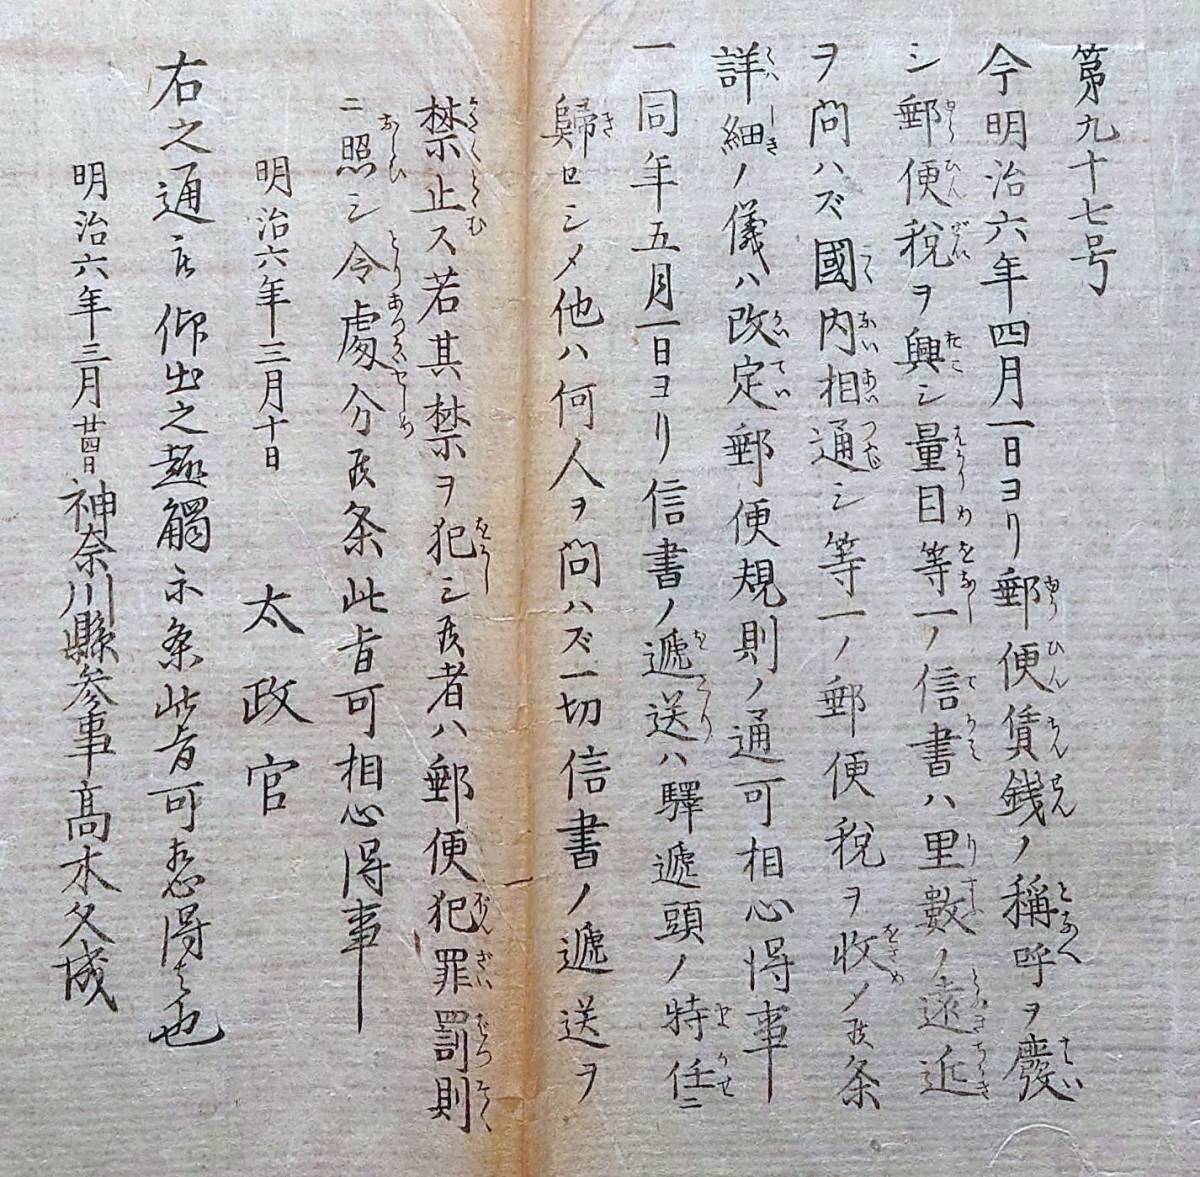 第九十七号
今明治六年四月一日ヨリ郵便賃銭ノ稱呼ヲ廢
シ郵便税ヲ興シ量目等一ノ信書ハ里數ノ遠近
ヲ問ハズ國内相通シ等一ノ郵便税ヲ收メ候条
詳細ノ儀ハ改定郵便規則ノ通可相心得事
一同年五月一日ヨリ信書ノ遞送ハ驛遞頭ノ特任ニ
歸セシメ他ハ何人ヲ問ハズ一切信書ノ遞送ヲ
禁止ス若其禁ヲ犯シ候者ハ郵便犯罪罰則
ニ照シ令處分候条此旨可相心得事
明治六年三月十日 太政官
右之通被仰出之趣觸示条此旨可相心得者也
明治六年三月廿四日 神奈川縣参事高木久成